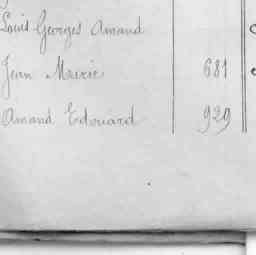 Louis Georges Amand
Jean Marie 681
Amand Edouard 929